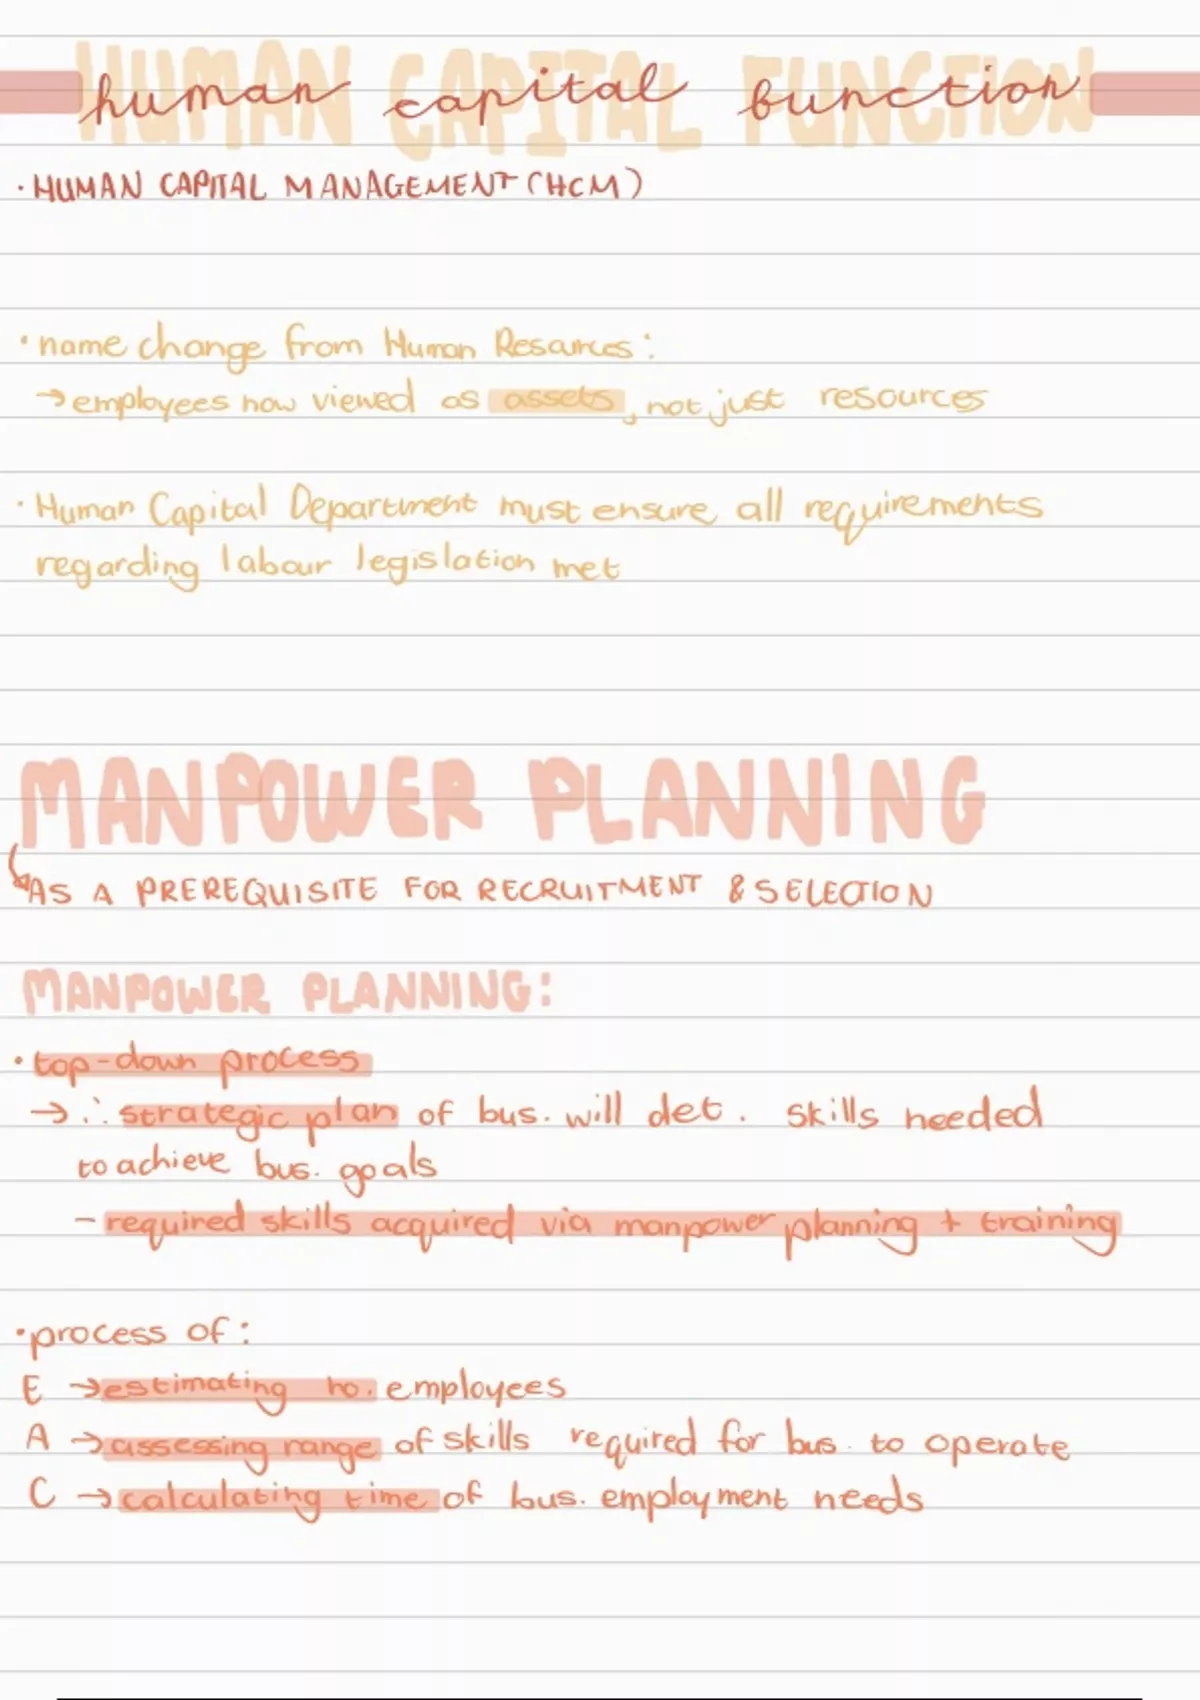 HUMAN CAPITAL FUNCTION
human capital function
· HUMAN CAPITAL MANAGEMENT (HCM)
· name change from Human Resources:
→ employees now viewed as assets, not just resources
· Human Capital Department must ensure all requirements
regarding labour legislation met
MANPOWER PLANNING
↳ AS A PREREQUISITE FOR RECRUITMENT & SELECTION
MANPOWER PLANNING:
· top-down process
→ ∴ strategic plan of bus. will det. skills needed
to achieve bus. goals
- required skills acquired via manpower planning + training
· process of:
E → estimating no. employees
A → assessing range of skills required for bus. to operate
C → calculating time of bus. employment needs